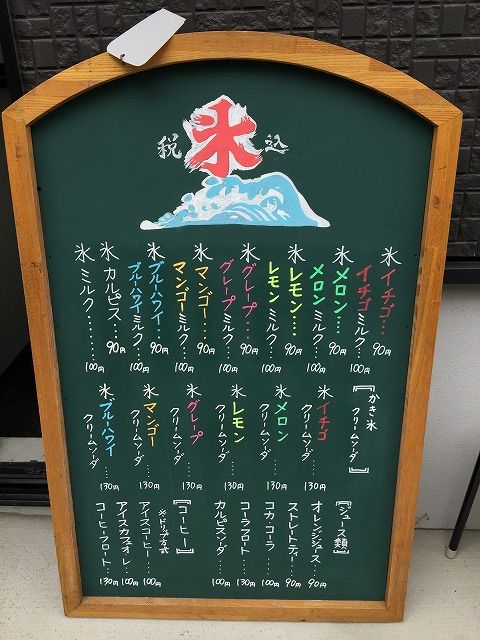 税氷込
氷イチゴ…90円
イチゴミルク…100円
氷メロン…90円
メロンミルク…100円
氷レモン…90円
レモンミルク…100円
氷グレープ…90円
グレープミルク…100円
氷マンゴー…90円
マンゴーミルク…100円
氷ブルーハワイ…90円
ブルーハワイミルク…100円
氷カルピス…90円
氷ミルク……100円
【かき氷
クリームソーダ】
氷イチゴ
クリームソーダ…130円
氷メロン
クリームソーダ…130円
氷レモン
クリームソーダ…130円
氷グレープ
クリームソーダ…130円
氷マンゴー
クリームソーダ…130円
氷ブルーハワイ
クリームソーダ…130円
【ジュース類】
オレンジジュース…90円
ストレートティー…90円
コカ・コーラ…100円
コーラフロート…130円
カルピスソーダ…100円
【コーヒー】
※ドリップ方式
アイスコーヒー…100円
アイスカフェオレ…100円
コーヒーフロート…130円